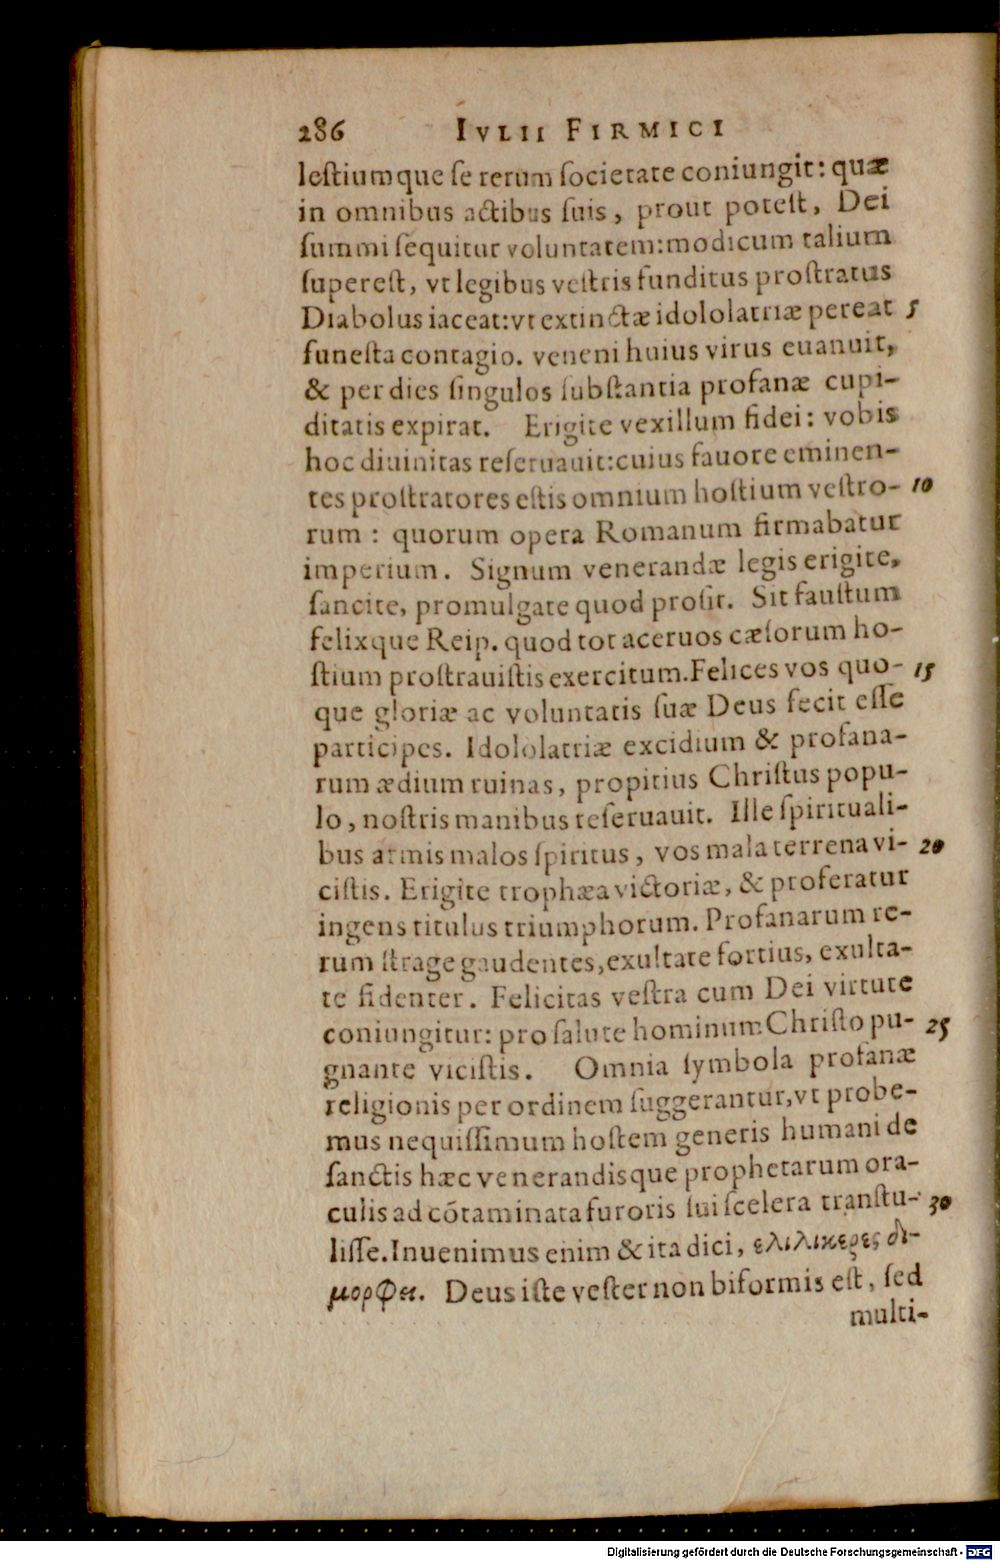 286 IVLII FIRMICI
lestiumque se rerum societate coniungit: quæ
in omnibus actibus suis, prout potest, Dei
summi sequitur voluntatem: modicum talium
superest, vt legibus vestris funditus prostratus
Diabolus iaceat: vt extinctæ idololatriæ pereat 5
funesta contagio. veneni huius virus euanuit,
& per dies singulos substantia profanæ cupi-
ditatis expirat. Erigite vexillum fidei: vobis
hoc diuinitas reseruauit: cuius fauore eminen-
tes prostratores estis omnium hostium vestro- 10
rum: quorum opera Romanum firmabatur
imperium. Signum venerandæ legis erigite,
sancite, promulgate quod prosit. Sit faustum
felixque Reip. quod tot aceruos cæsorum ho-
stium prostrauistis exercitum. Felices vos quo- 15
que gloriæ ac voluntatis suæ Deus fecit esse
participes. Idololatriæ excidium & profana-
rum ædium ruinas, propitius Christus popu-
lo, nostris manibus reseruauit. Ille spirituali-
bus armis malos spiritus, vos mala terrena vi- 20
cistis. Erigite trophæa victoriæ, & proferatur
ingens titulus triumphorum. Profanarum re-
rum strage gaudentes, exultate fortius, exulta-
te fidenter. Felicitas vestra cum Dei virtute
coniungitur: pro salute hominum Christo pu- 25
gnante vicistis. Omnia symbola profanæ
religionis per ordinem suggerantur, vt probe-
mus nequissimum hostem generis humani de
sanctis hæc venerandisque prophetarum ora-
culis ad cõtaminata furoris sui scelera transtu- 30
lisse. Inuenimus enim & ita dici, ελιλικερες δι-
μορφε. Deus iste vester non biformis est, sed
multi-
Digitalisierung gefördert durch die Deutsche Forschungsgemeinschaft - DFG